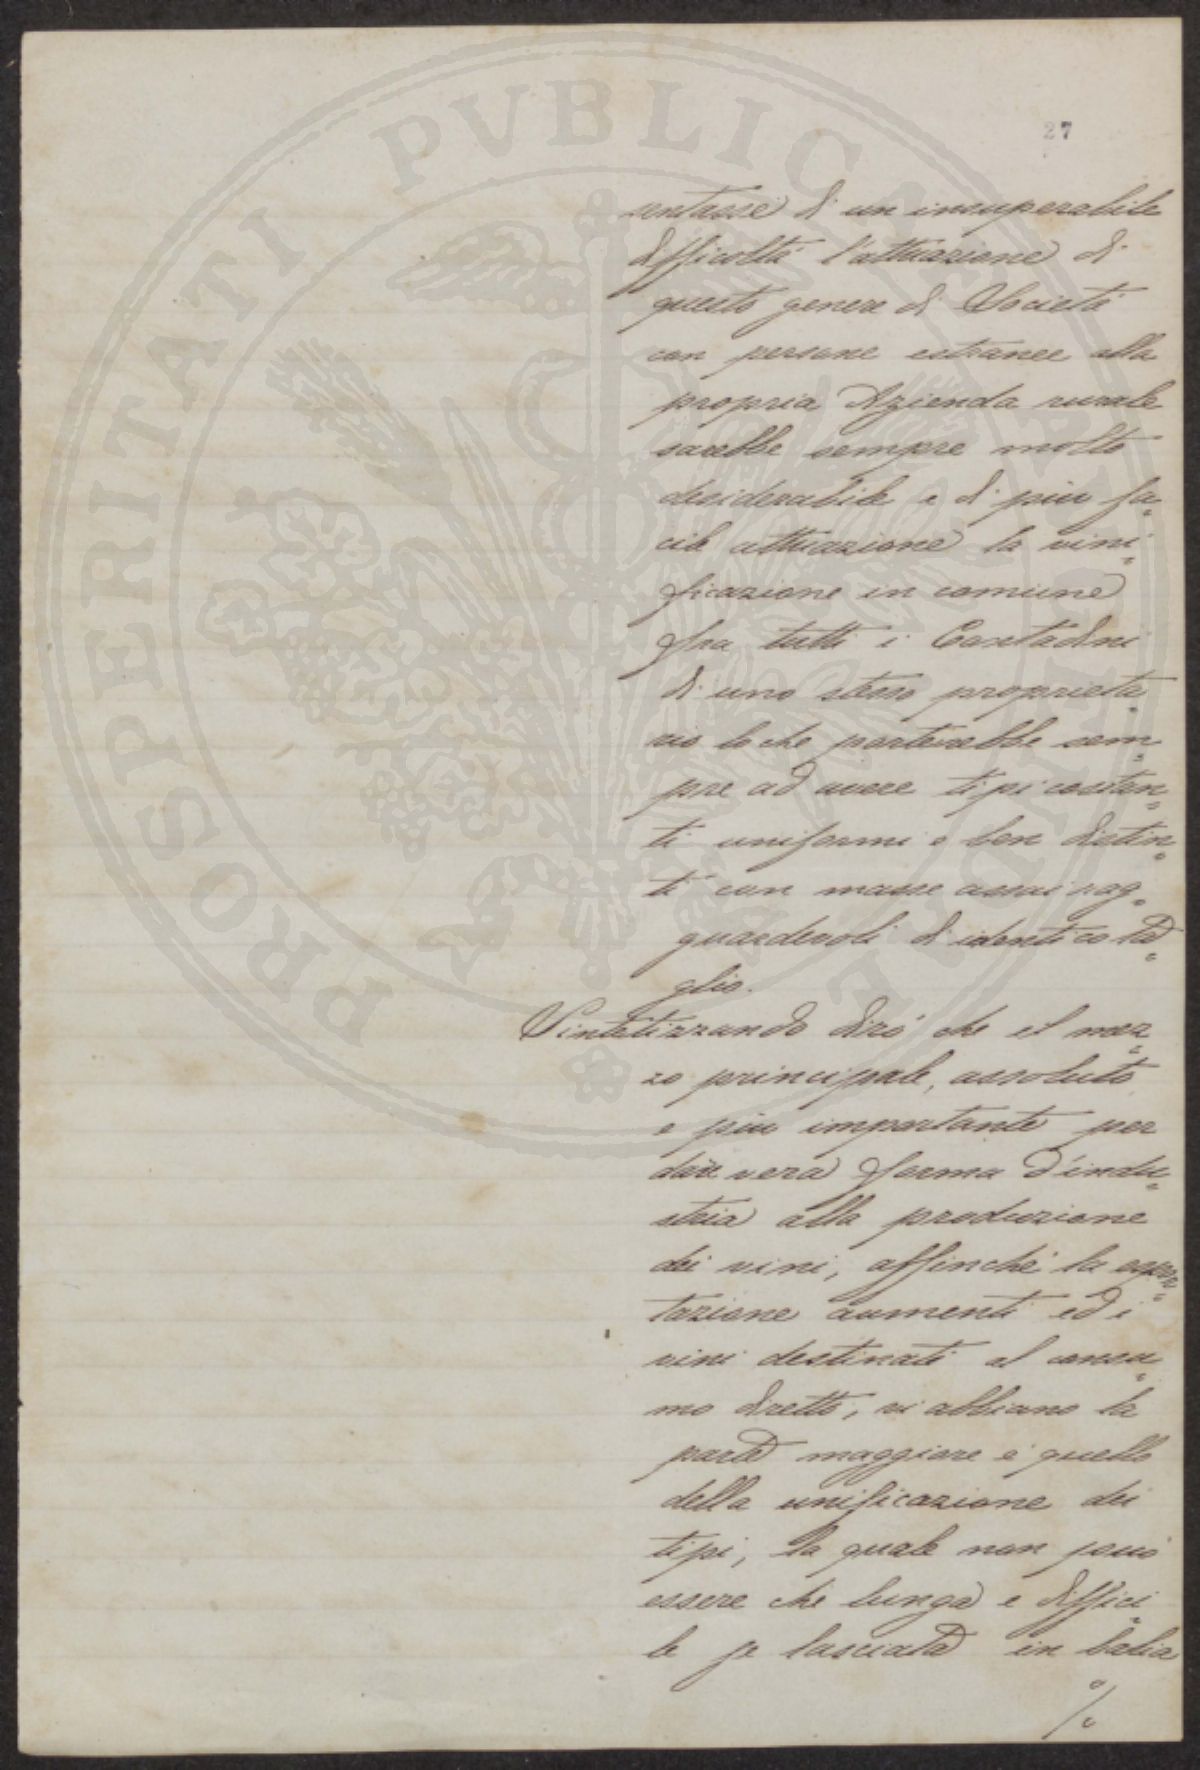 27
sentasse di un insuperabile
difficoltà l'attuazione di
questo genere di Società
con persone estranee alla
propria Azienda rurale
sarebbe sempre molto
desiderabile e di più fa=
cile attuazione la vini=
ficazione in comune
fra tutti i Contadini
di uno stesso proprieta=
rio lo che porterebbe sem=
pre ad avere tipi costan=
ti uniformi e ben distin=
ti con masse assai rag=
guardevoli di identico ta=
glio.
Sintetizzando dirò che il mez=
zo principale, assoluto
e più importante per
dare vera forma d'indu=
stria alla produzione
dei vini, affinchè la espor=
tazione aumenti ed i
vini destinati al consu=
mo diretto, vi abbiano la
parte maggiore è quello
della unificazione dei
tipi, la quale non può
essere che lunga e diffici=
le se lasciata in balia
%
PROSPERITATI PVBLICAE